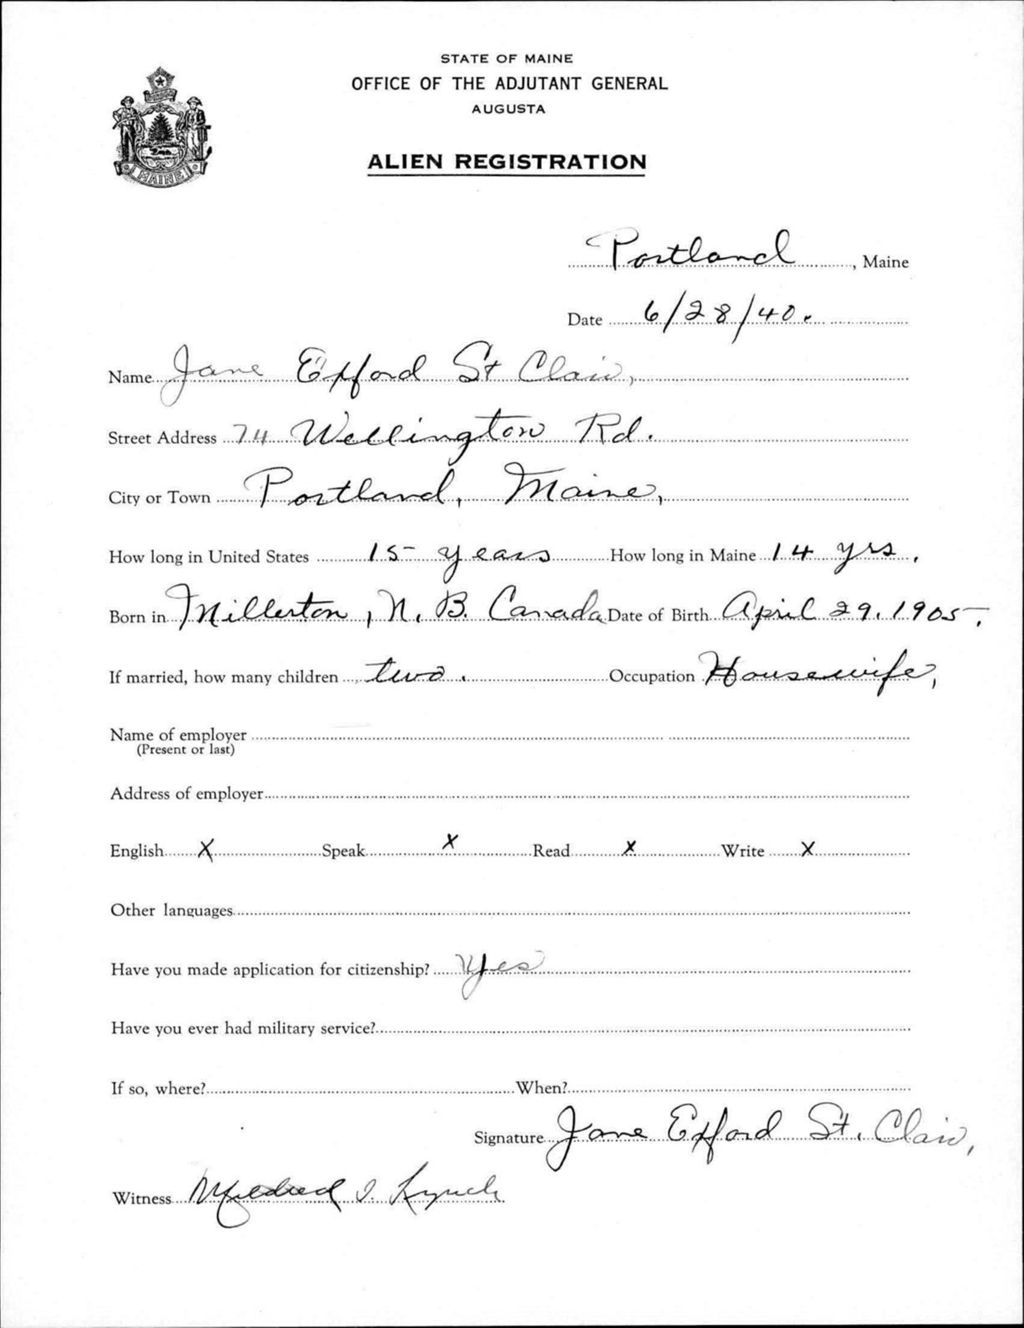 STATE OF MAINE
OFFICE OF THE ADJUTANT GENERAL
AUGUSTA
ALIEN REGISTRATION
MAINE
Portland, Maine
Date 6/28/40.
Name Jane Exford St Clair,
Street Address 74 Wellington Rd.
City or Town Portland, Maine,
How long in United States 15 years How long in Maine 14 yrs.
Born in Millerton, N. B. Canada Date of Birth April 29, 1905.
If married, how many children two. Occupation Housewife,
Name of employer
(Present or last)
Address of employer
English X Speak X Read X Write X
Other languages
Have you made application for citizenship? Yes
Have you ever had military service?
If so, where? When?
Signature Jane Exford St. Clair,
Witness Mildred I. Lynch